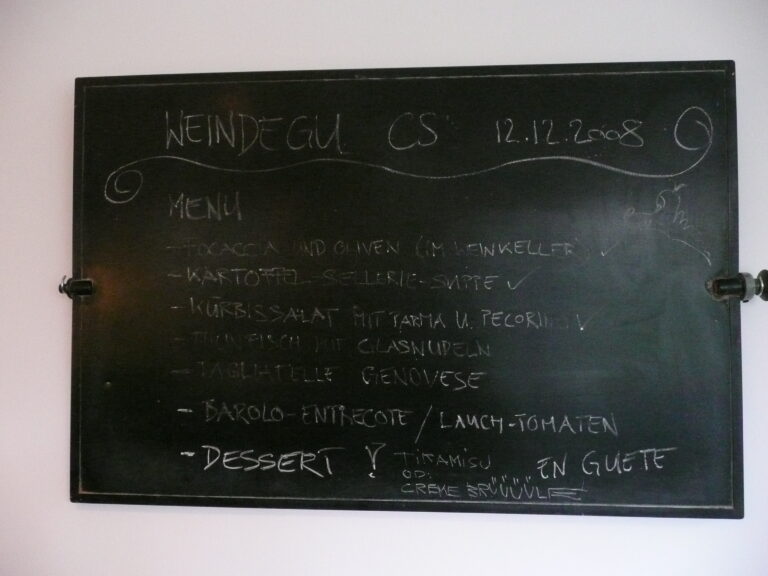 WEINDEGU CS 12.12.2008
MENU
- FOCACCIA UND OLIVEN (IM WEINKELLER) ✓
- KARTOFFEL-SELLERIE-SUPPE ✓
- KÜRBISSALAT MIT PARMA U. PECORINO ✓
- THUNFISCH MIT GLASNUDELN
- TAGLIATELLE GENOVESE
- BAROLO-ENTRECOTE / LAUCH-TOMATEN
- DESSERT ! TIRAMISU EN GUETE
OD:
CREME BRÜÜÜÜLEE